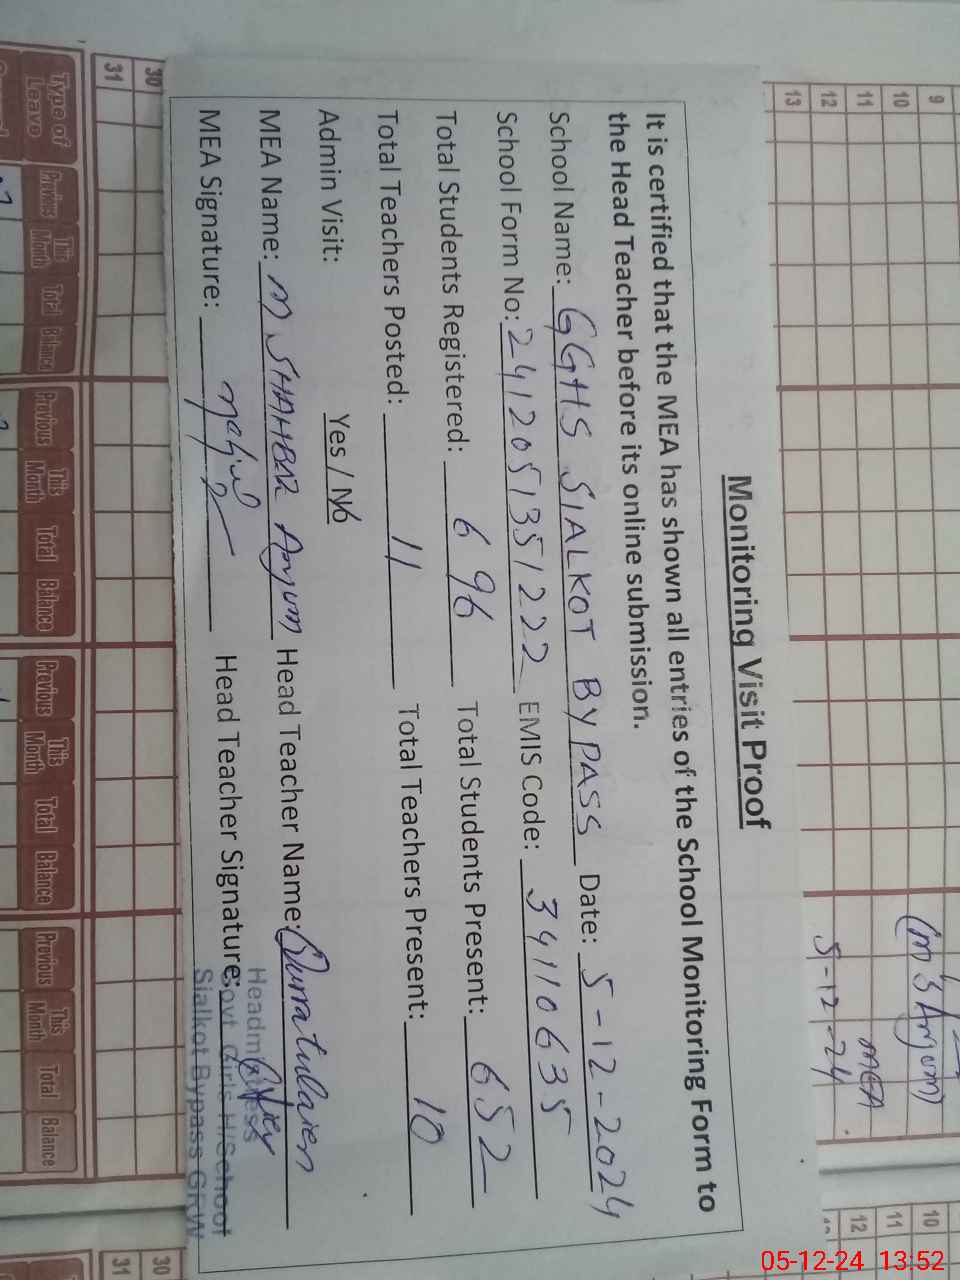 Monitoring Visit Proof
It is certified that the MEA has shown all entries of the School Monitoring Form to
the Head Teacher before its online submission.
School Name: GGHS SIALKOT BYPASS Date: 5-12-2024
School Form No: 2412051351222 EMIS Code: 34110635
Total Students Registered: 696 Total Students Present: 652
Total Teachers Posted: 11 Total Teachers Present: 10
Admin Visit: Yes / No
MEA Name: M SHAHBAZ Anjum Head Teacher Name: Qurratulaien
MEA Signature: Head Teacher Signature:
Headmistress
Govt Girls H/School
Sialkot Bypass GRW
9
10
11
12
13
(M S Anjum)
MEA
5-12-24
10
11
12
30
31
30
31
Type of Leave
Previous This Month Total Balance
Previous This Month Total Balance
Previous This Month Total Balance
Previous This Month Total Balance
05-12-24 13:52